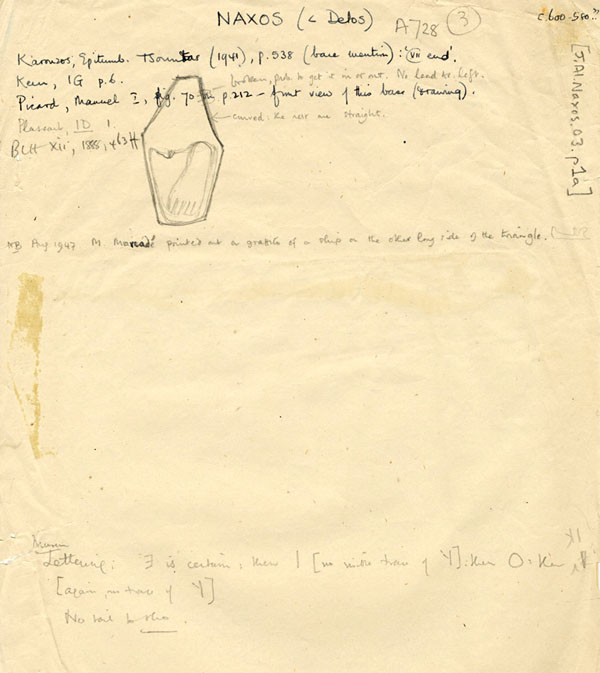 NAXOS (< Delos)
A728
3
c. 600-580??
[JAI.Naxos.03.p1a]
Karouzos, Epitumb. Tsountas (1941), p. 538 (bare mention): 'VII end'.
Kern, IG p. 6.
broken, prob. to get it in or out. No lead etc. left.
Picard, Manuel I, fig. 70 p. 212 – front view of this base (drawing).
Plassart, ID 1
curved: the rest are straight.
BCH XII, 1888, 463ff
NB Aug 1947 M. Marcadé pointed out a graffito of a ship on the other long side of the triangle.
Lettering: is certain; then | [no visible trace of Y]: then O: then
[again, no trace of Y]
No tail to